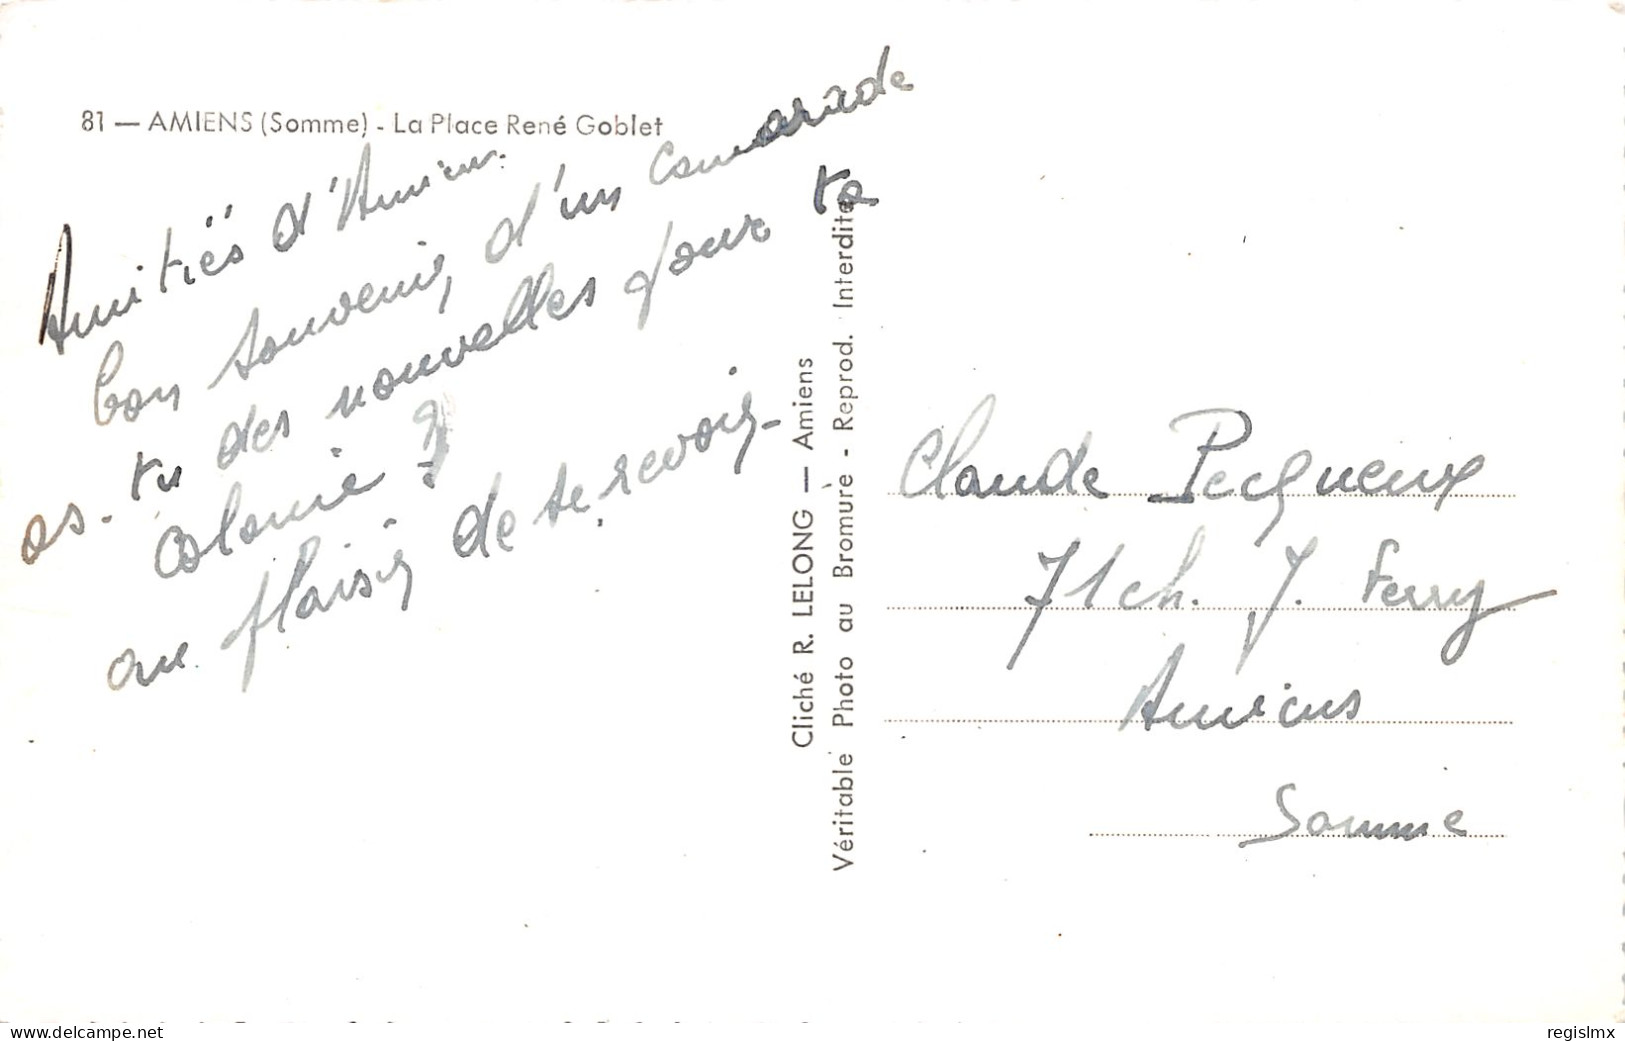 81 — AMIENS (Somme) - La Place René Goblet
Amitiés d'Amiens.
bon souvenir, d'un camarade
as-tu des nouvelles pour ta
colonie ?
au plaisir de te revoir-
Cliché R. LELONG — Amiens
Véritable Photo au Bromure - Reprod. Interdite
Claude Pecqueux
71 ch. J. Ferry
Amiens
Somme
www.delcampe.net
regislmx